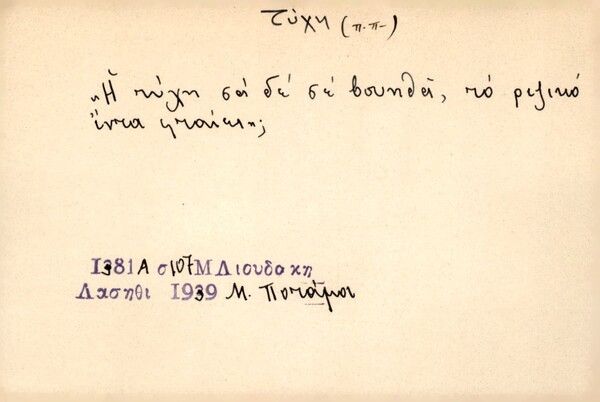 Τύχη (π.π-)
"Ἡ τύχη σὰ δέ σέ βουηθᾶ, τό ριζικό
ἴντα φταίει";
1381Α σ107 Μ Λιουδακη
Λασηθι 1939 Μ. Ποτάμοι